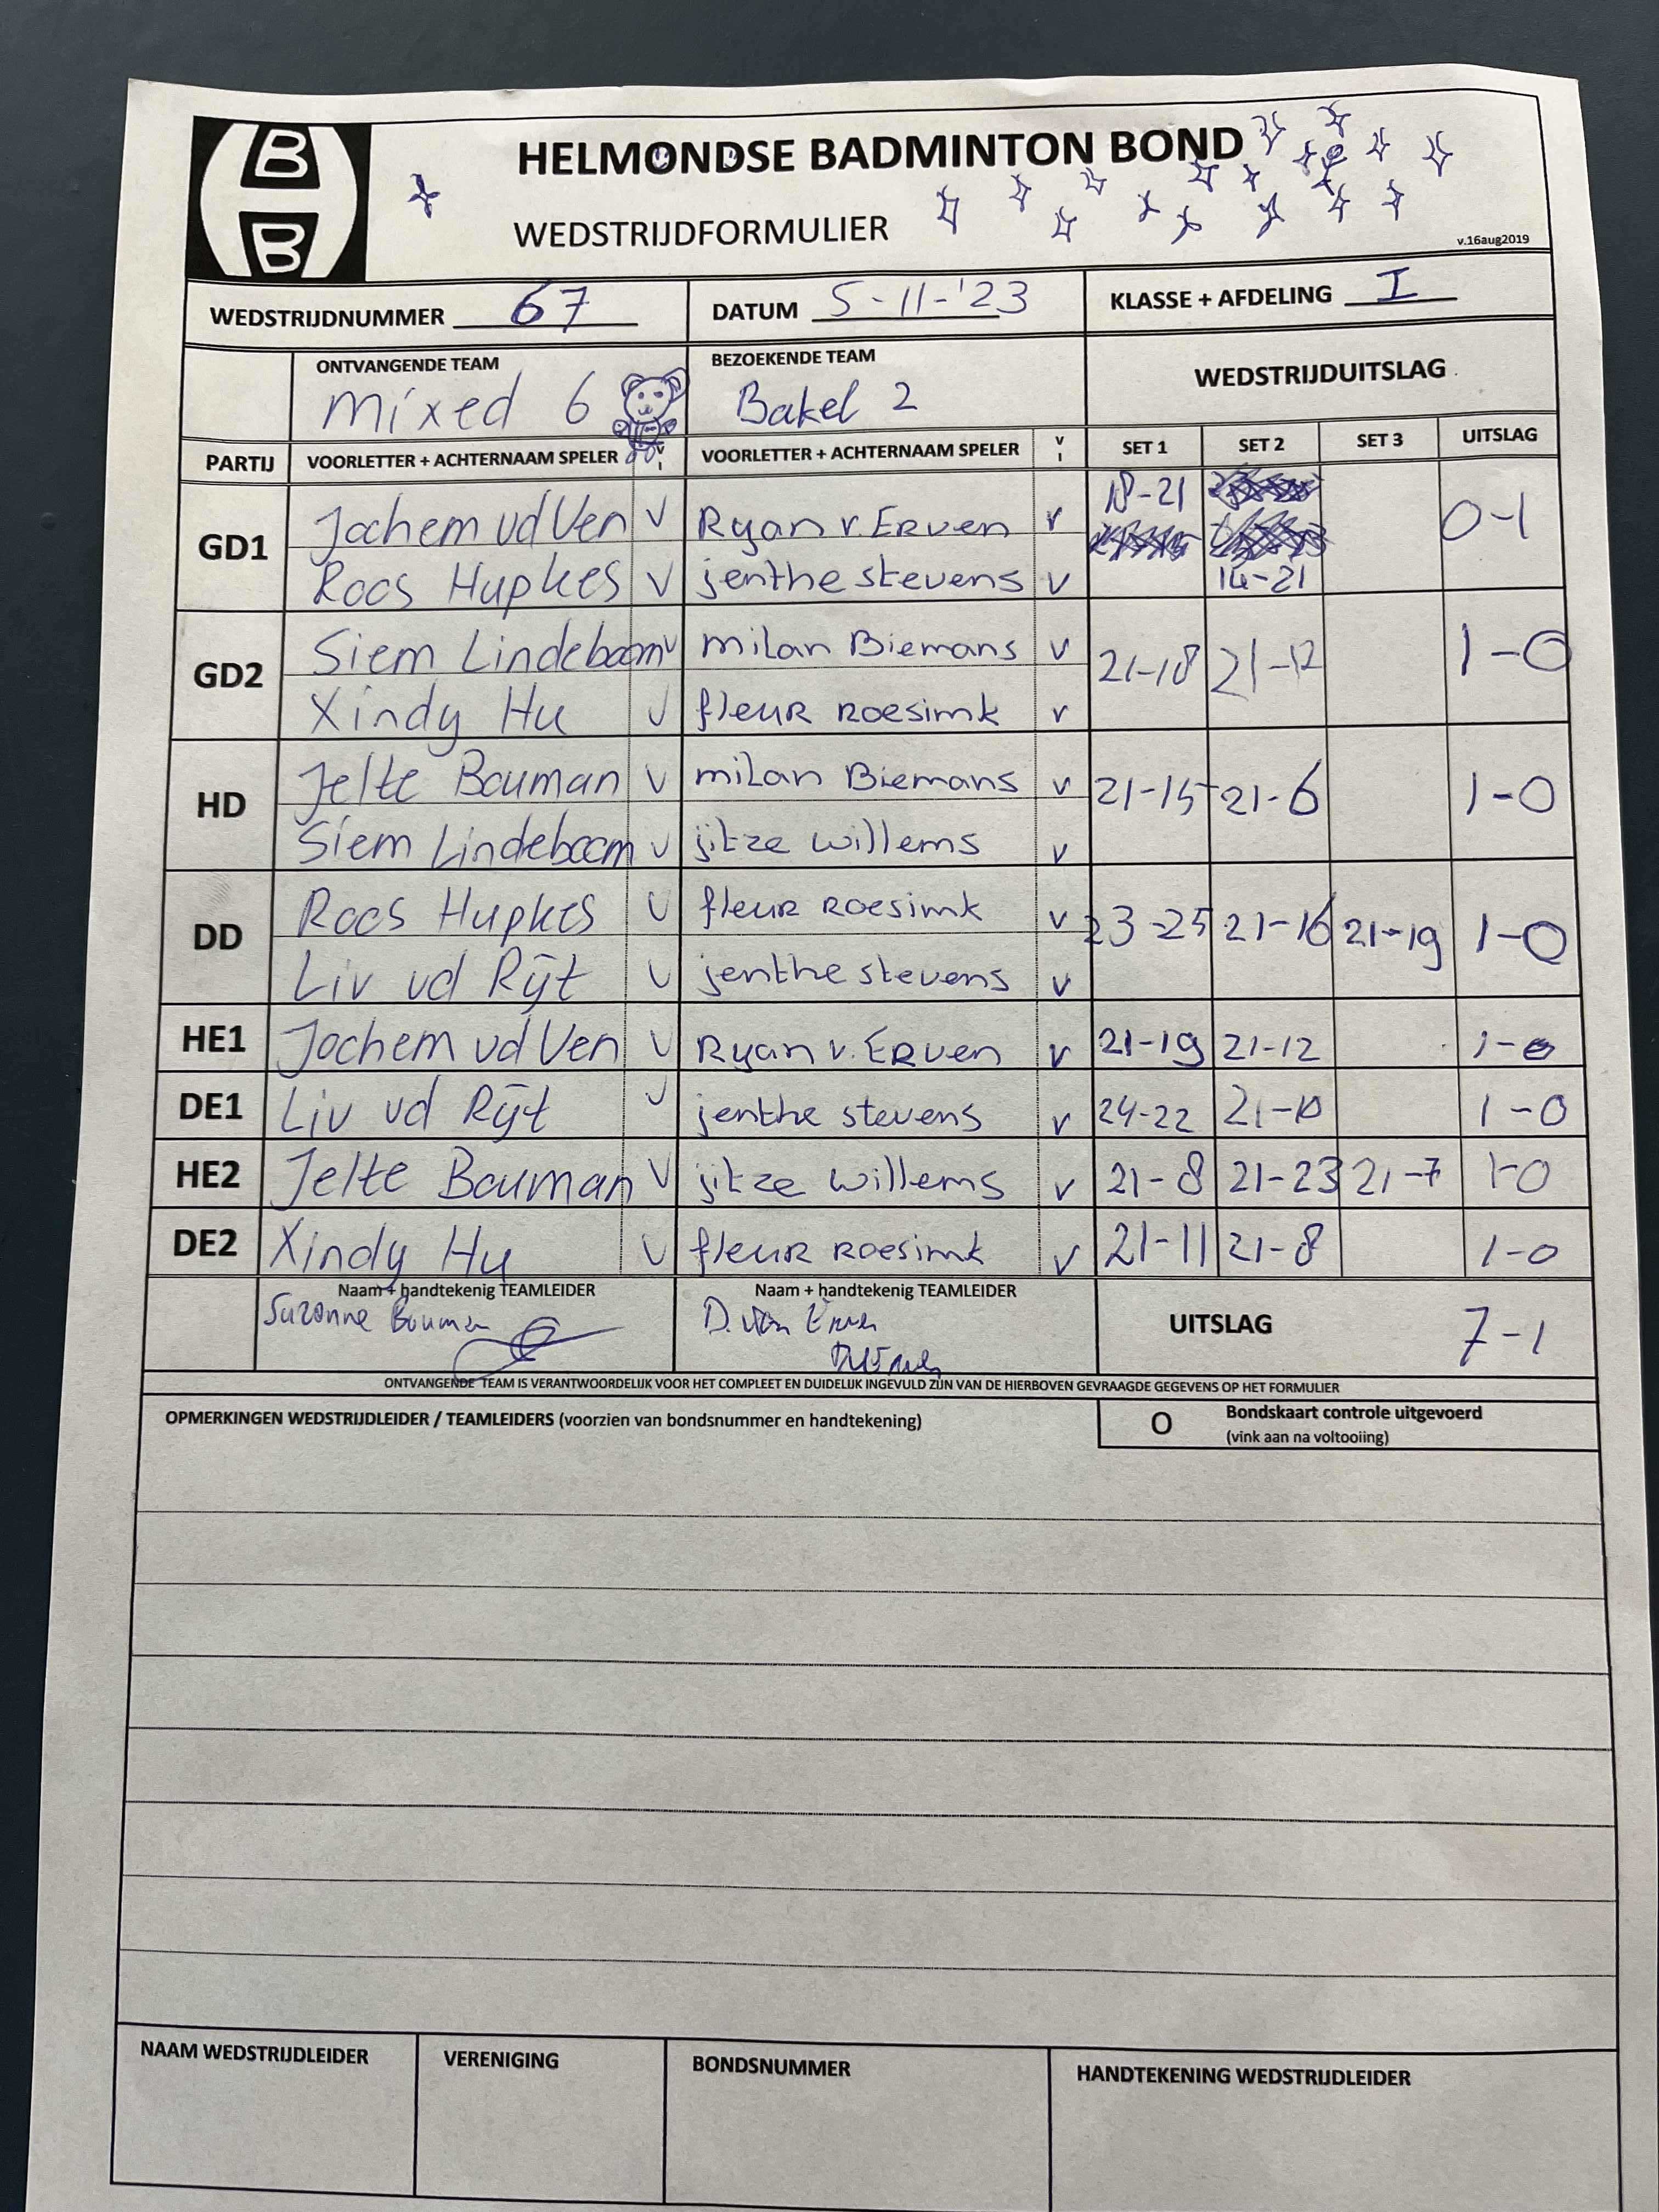 B
B
HELMONDSE BADMINTON BOND
WEDSTRIJDFORMULIER
v.16aug2019
WEDSTRIJDNUMMER 67
DATUM 5-11-'23
KLASSE + AFDELING I
ONTVANGENDE TEAM
mixed 6
BEZOEKENDE TEAM
Bakel 2
WEDSTRIJDUITSLAG
PARTIJ VOORLETTER + ACHTERNAAM SPELER V I VOORLETTER + ACHTERNAAM SPELER V I SET 1 SET 2 SET 3 UITSLAG
GD1 Jochem vd Ven V Ryan v. Erven v 18-21 14-21 0-1
Roos Hupkes V jenthe stevens v
GD2 Siem Lindeboom v milan Biemans v 21-18 21-12 1-0
Xindy Hu V fleur Roesimk v
HD Jelte Bouman V milan Biemans v 21-15 21-6 1-0
Siem Lindeboom v jitze willems v
DD Roos Hupkes V fleur Roesimk v 23-25 21-16 21-19 1-0
Liv vd Rijt V jenthe stevens v
HE1 Jochem vd Ven V Ryan v. Erven v 21-19 21-12 1-0
DE1 Liv vd Rijt V jenthe stevens v 24-22 21-10 1-0
HE2 Jelte Bouman V jitze willems v 21-8 21-23 21-7 1-0
DE2 Xindy Hu V fleur Roesimk v 21-11 21-8 1-0
Naam + handtekenig TEAMLEIDER
Suzanne Bouman
Naam + handtekenig TEAMLEIDER
D. van Erven
UITSLAG 7-1
ONTVANGENDE TEAM IS VERANTWOORDELIJK VOOR HET COMPLEET EN DUIDELIJK INGEVULD ZIJN VAN DE HIERBOVEN GEVRAAGDE GEGEVENS OP HET FORMULIER
OPMERKINGEN WEDSTRIJDLEIDER / TEAMLEIDERS (voorzien van bondsnummer en handtekening)
O Bondskaart controle uitgevoerd
(vink aan na voltooiing)
NAAM WEDSTRIJDLEIDER VERENIGING BONDSNUMMER HANDTEKENING WEDSTRIJDLEIDER